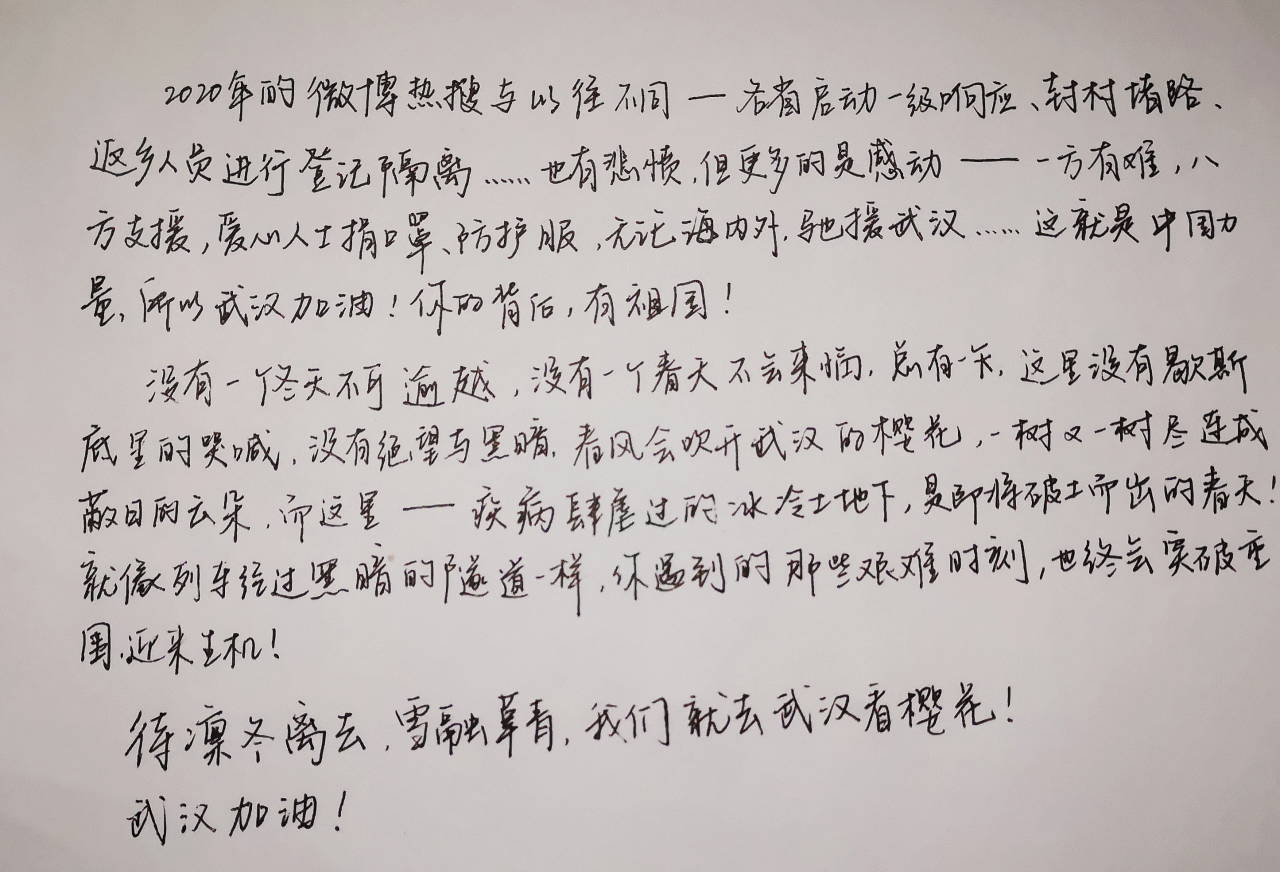 2020年的微博热搜与以往不同——各省启动一级响应、封村堵路、
返乡人员进行登记隔离……也有悲愤,但更多的是感动——一方有难,八
方支援,爱心人士捐口罩、防护服,无论海内外,驰援武汉……这就是中国力
量,所以武汉加油!你的背后,有祖国!
没有一个冬天不可逾越,没有一个春天不会来临,总有一天,这里没有歇斯
底里的哭喊,没有绝望与黑暗,春风会吹开武汉的樱花,一树又一树尽连成
蔽日的云朵,而这里——疾病肆虐过的冰冷土地下,是即将破土而出的春天!
就像列车经过黑暗的隧道一样,你遇到的那些艰难时刻,也终会突破重
围,迎来生机!
待凛冬离去,雪融草青,我们就去武汉看樱花!
武汉加油!